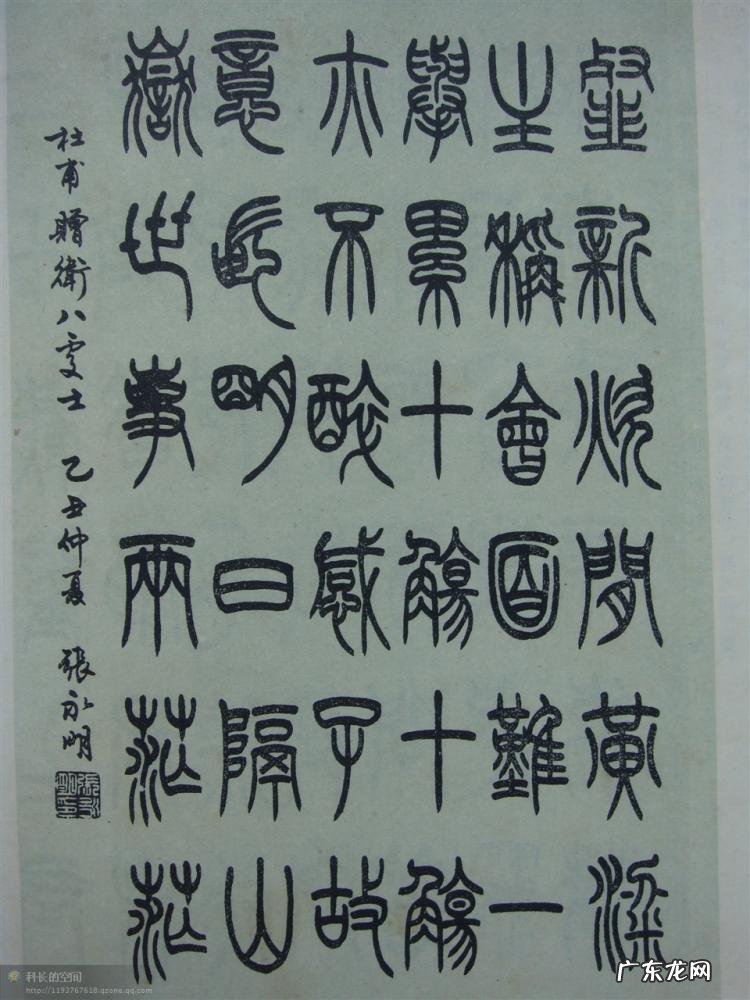 韭新炊間黃粱
主稱會面難一
舉累十觴十觴
亦不醉感子故
意長明日隔山
嶽世事兩茫茫
杜甫贈衛八處士 乙丑仲夏 張永明
科长的空间
http://1193767618.qzone.qq.com
广东龙网